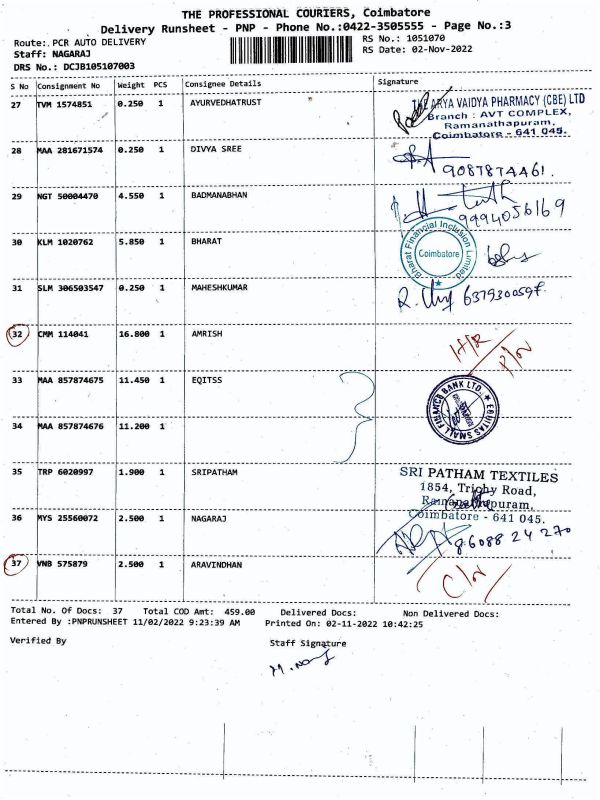 THE PROFESSIONAL COURIERS, Coimbatore
Delivery Runsheet - PNP - Phone No.:0422-3505555 - Page No.:3
Route: PCR AUTO DELIVERY
RS No.: 1051070
Staff: NAGARAJ
RS Date: 02-Nov-2022
DRS No.: DCJB105107003
S No Consignment No Weight PCS Consignee Details Signature
27 TVM 1574851 0.250 1 AYURVEDHATRUST
THE ARYA VAIDYA PHARMACY (CBE) LTD
Branch : AVT COMPLEX,
Ramanathapuram,
Coimbatore - 641 045.
28 MAA 281671574 0.250 1 DIVYA SREE
9087874461.
29 NGT 50004470 4.550 1 BADMANABHAN
9994056169
30 KLM 1020762 5.850 1 BHARAT
Bharat Financial Inclusion Limited
Coimbatore
31 SLM 306503547 0.250 1 MAHESHKUMAR
6379300597
32 CMM 114041 16.800 1 AMRISH
33 MAA 857874675 11.450 1 EQITSS
EQUITAS SMALL FINANCE BANK LTD.
34 MAA 857874676 11.200 1
35 TRP 6020997 1.900 1 SRIPATHAM
SRI PATHAM TEXTILES
1854, Trichy Road,
Ramanathapuram,
Coimbatore - 641 045.
36 MYS 25560072 2.500 1 NAGARAJ
86088 24 270
37 VNB 575879 2.500 1 ARAVINDHAN
Total No. Of Docs: 37 Total COD Amt: 459.00 Delivered Docs: Non Delivered Docs:
Entered By :PNPRUNSHEET 11/02/2022 9:23:39 AM Printed On: 02-11-2022 10:42:25
Verified By
Staff Signature